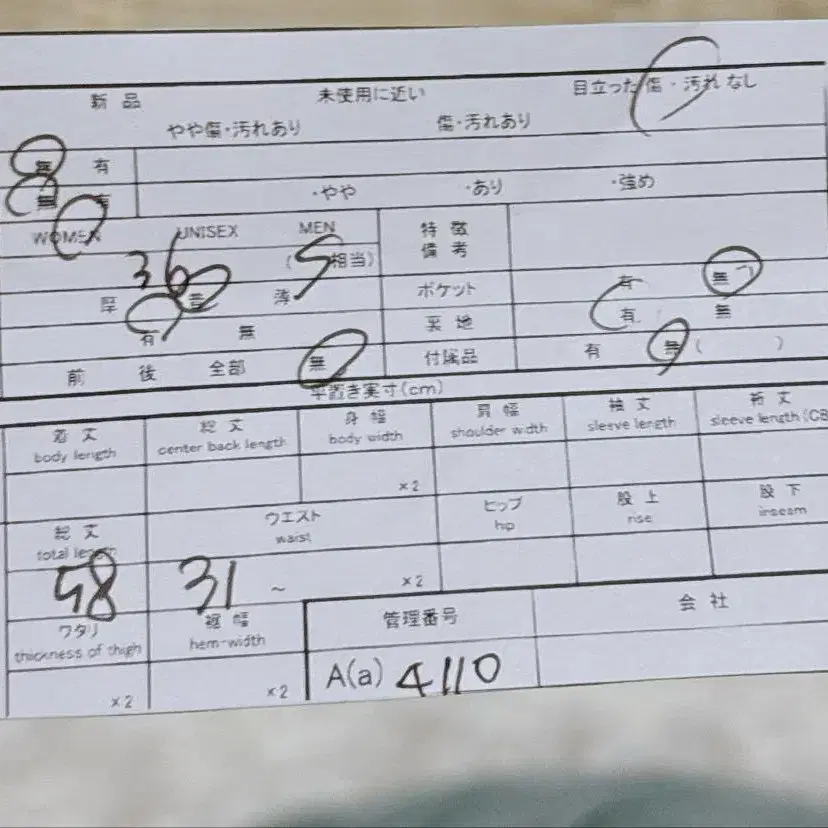 新品 未使用に近い 目立った傷・汚れなし
やや傷・汚れあり 傷・汚れあり
無 有
無 有 ・やや ・あり ・強め
WOMEN UNISEX MEN 特徴
備考
36 (S相当)
厚 普 薄 ポケット 有 無
有 無 裏地 有 無
前 後 全部 無 付属品 有 無 ( )
平置き実寸(cm)
着丈 総丈 身幅 肩幅 袖丈 裄丈
body length center back length body width shoulder width sleeve length sleeve length(CB
×2
総丈 ウエスト ヒップ 股上 股下
total length waist hip rise inseam
58 31 ~ ×2
ワタリ 裾幅 管理番号 会社
thickness of thigh hem-width
×2 ×2 A(a) 4110